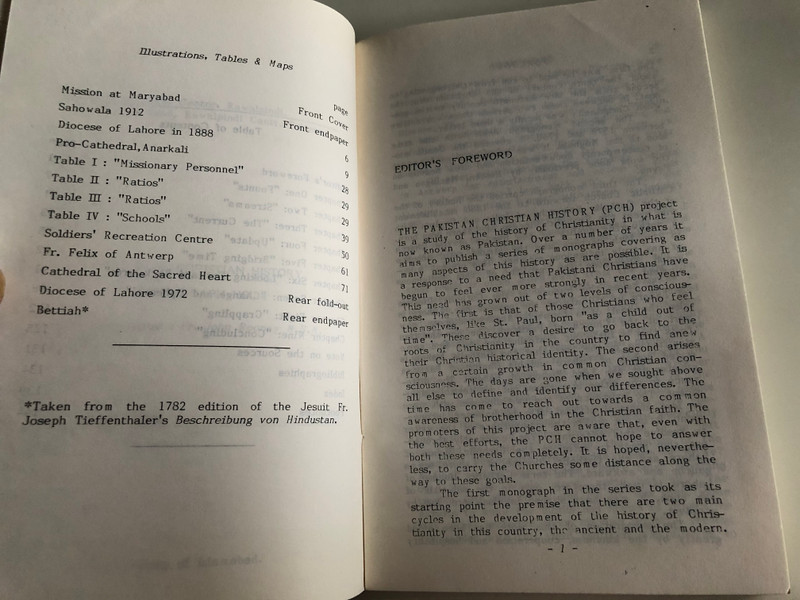 Illustrations, Tables & Maps
page
Mission at Maryabad Front Cover
Sahowala 1912 Front endpaper
Diocese of Lahore in 1888 6
Pro-Cathedral, Anarkali 9
Table I : "Missionary Personnel" 28
Table II : "Ratios" 29
Table III : "Ratios" 29
Table IV : "Schools" 39
Soldiers' Recreation Centre 50
Fr. Felix of Antwerp 61
Cathedral of the Sacred Heart 71
Diocese of Lahore 1972 Rear fold-out
Bettiah* Rear endpaper
*Taken from the 1782 edition of the Jesuit Fr.
Joseph Tieffenthaler's Beschreibung von Hindustan.
EDITOR'S FOREWORD
THE PAKISTAN CHRISTIAN HISTORY (PCH) project
is a study of the history of Christianity in what is
now known as Pakistan. Over a number of years it
aims to publish a series of monographs covering as
many aspects of this history as are possible. It is
a response to a need that Pakistani Christians have
begun to feel ever more strongly in recent years.
This need has grown out of two levels of conscious-
ness. The first is that of those Christians who feel
themselves, like St. Paul, born "as a child out of
time". These discover a desire to go back to the
roots of Christianity in the country to find anew
their Christian historical identity. The second arises
from a certain growth in common Christian con-
sciousness. The days are gone when we sought above
all else to define and identify our differences. The
time has come to reach out towards a common
awareness of brotherhood in the Christian faith. The
promoters of this project are aware that, even with
the best efforts, the PCH cannot hope to answer
both these needs completely. It is hoped, neverthe-
less, to carry the Churches some distance along the
way to these goals.
The first monograph in the series took as its
starting point the premise that there are two main
cycles in the development of the history of Chris-
tianity in this country, the ancient and the modern.
- 1 -